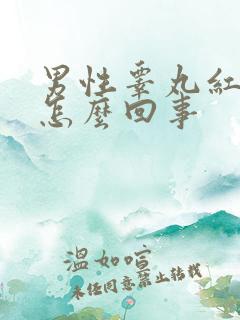 男性睾丸紅
怎麼回事
溫如喧
未经同意禁止转载